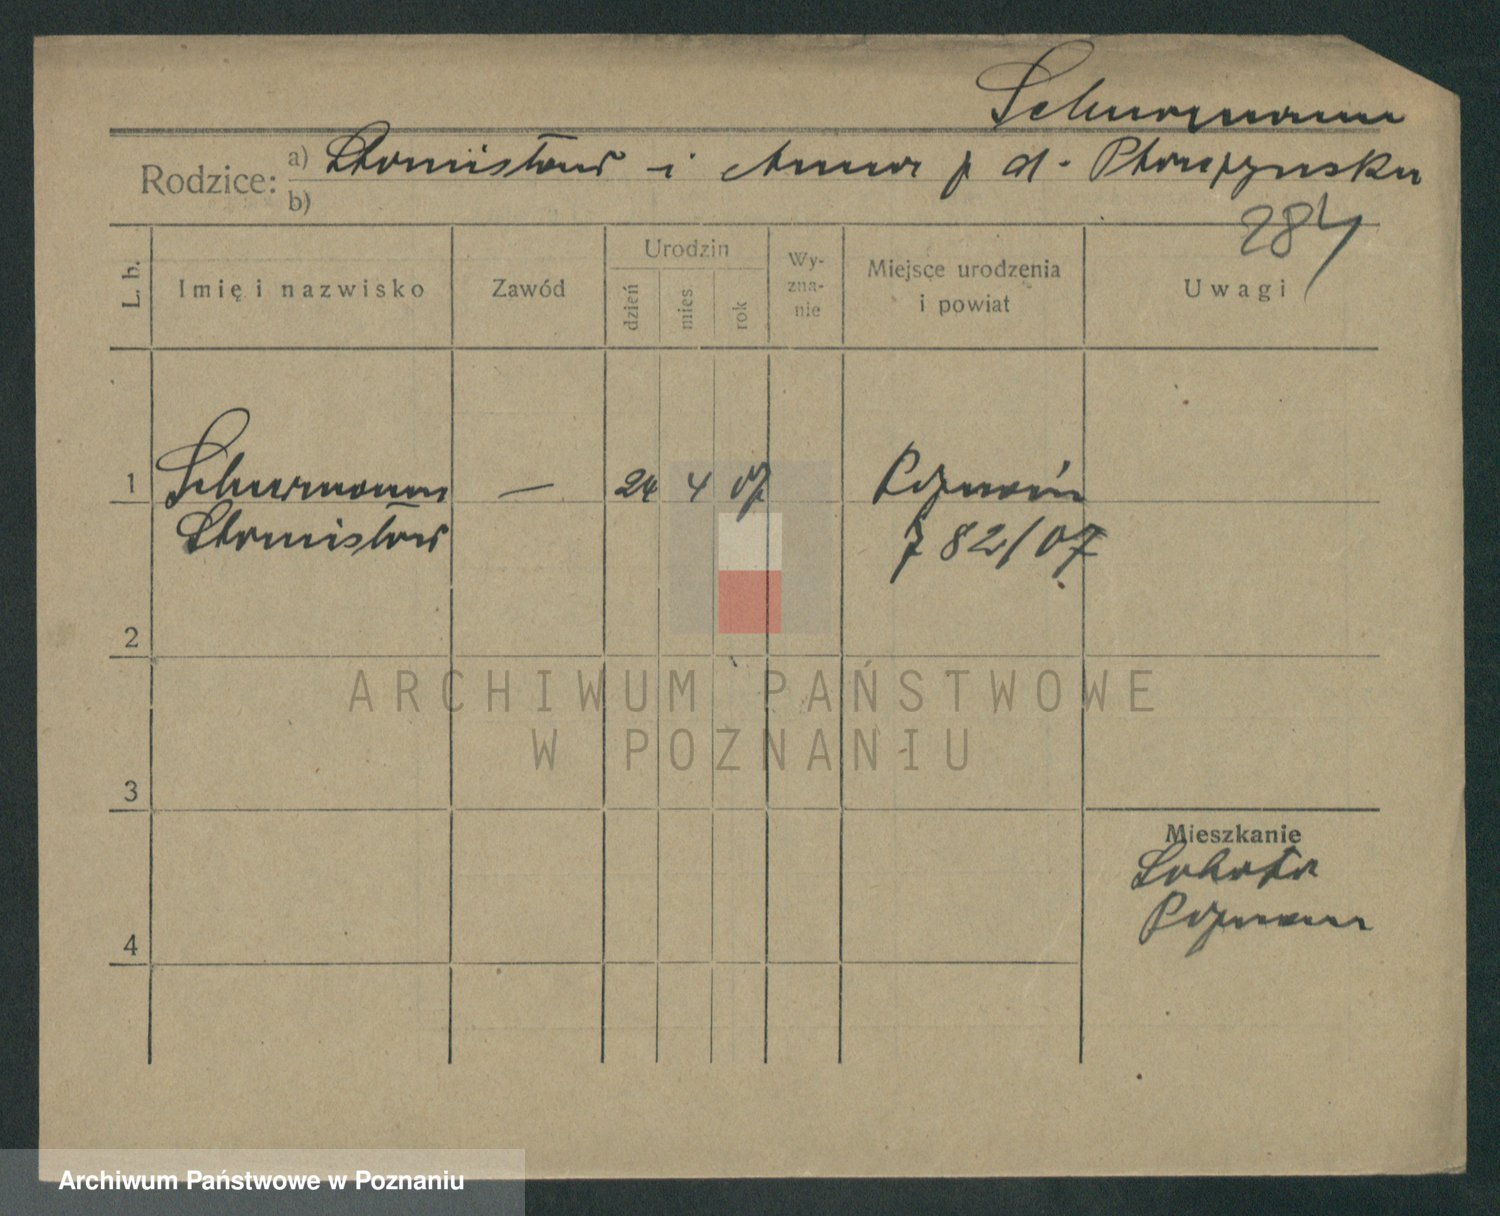 Schurmann
Rodzice: a) Stanisław i Anna z d.
b)
284
L. b.
Imię i nazwisko
Zawód
Urodzin
dzień
mies.
rok
Wy-
zna-
nie
Miejsce urodzenia
i powiat
Uwagi
1 Schurmann — 24 4 07 Poznań
Stanisław 782/07
2
ARCHIWUM PAŃSTWOWE
W POZNANIU
3
Mieszkanie
Sobota
Poznań
4
Archiwum Państwowe w Poznaniu